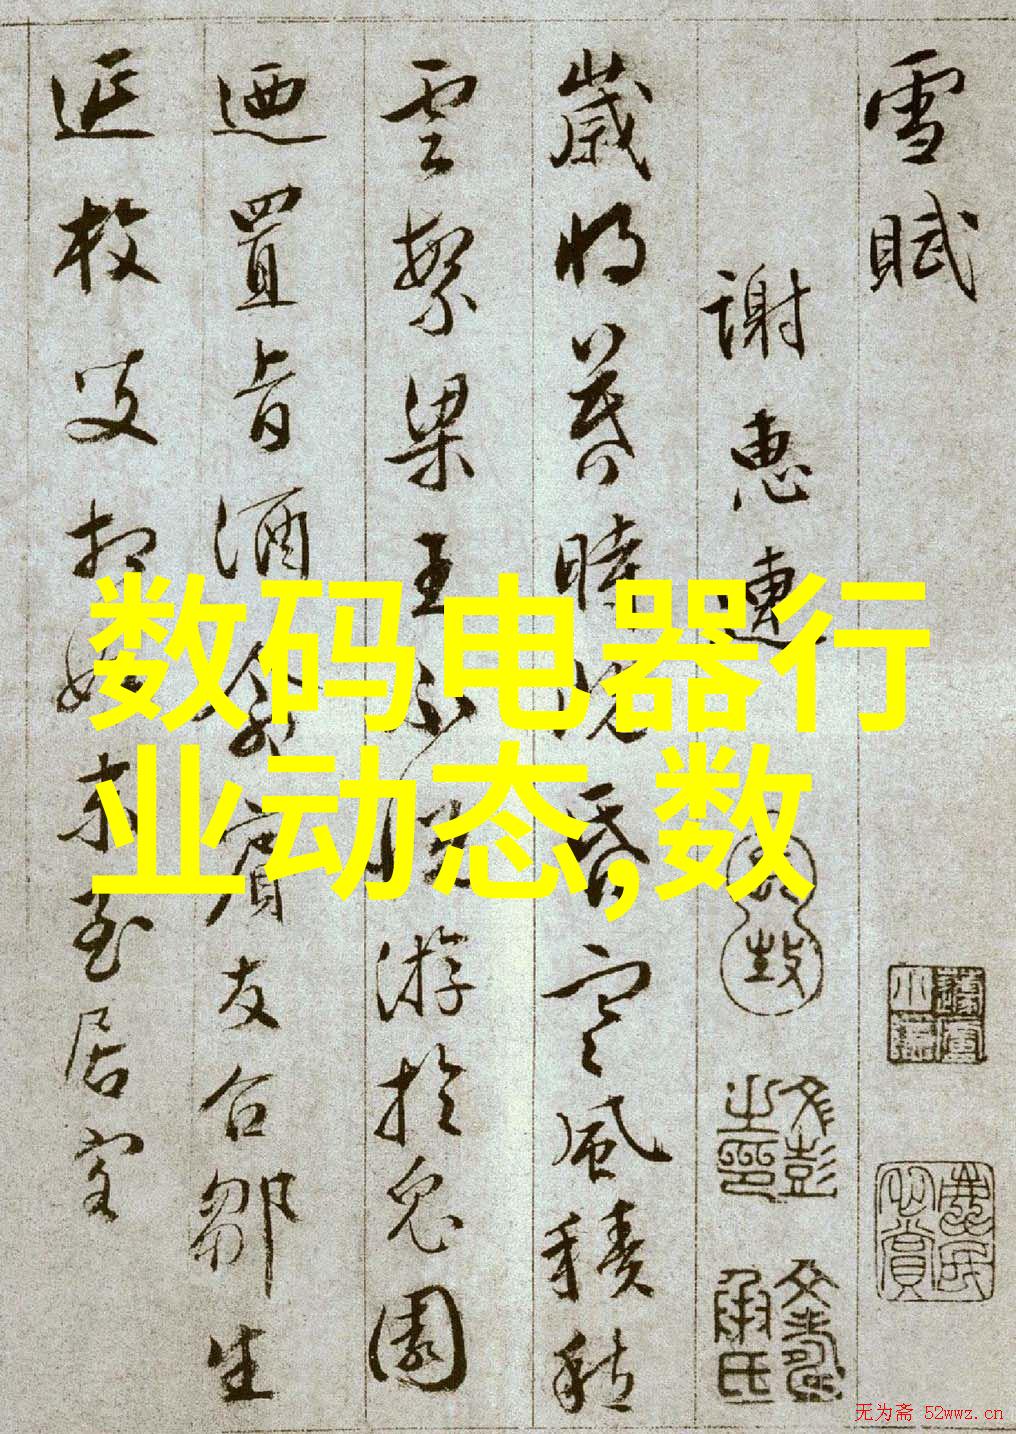 雪賦
謝惠連
歲將暮時既昏寒風積愁
雲繁梁王不悦游於兔園
迺置旨酒命賓友召鄒生
延枚叟相如末至居客
数码电器行
业动态,数
文彭之印
文壽承氏
无为斋 52wwz.cn